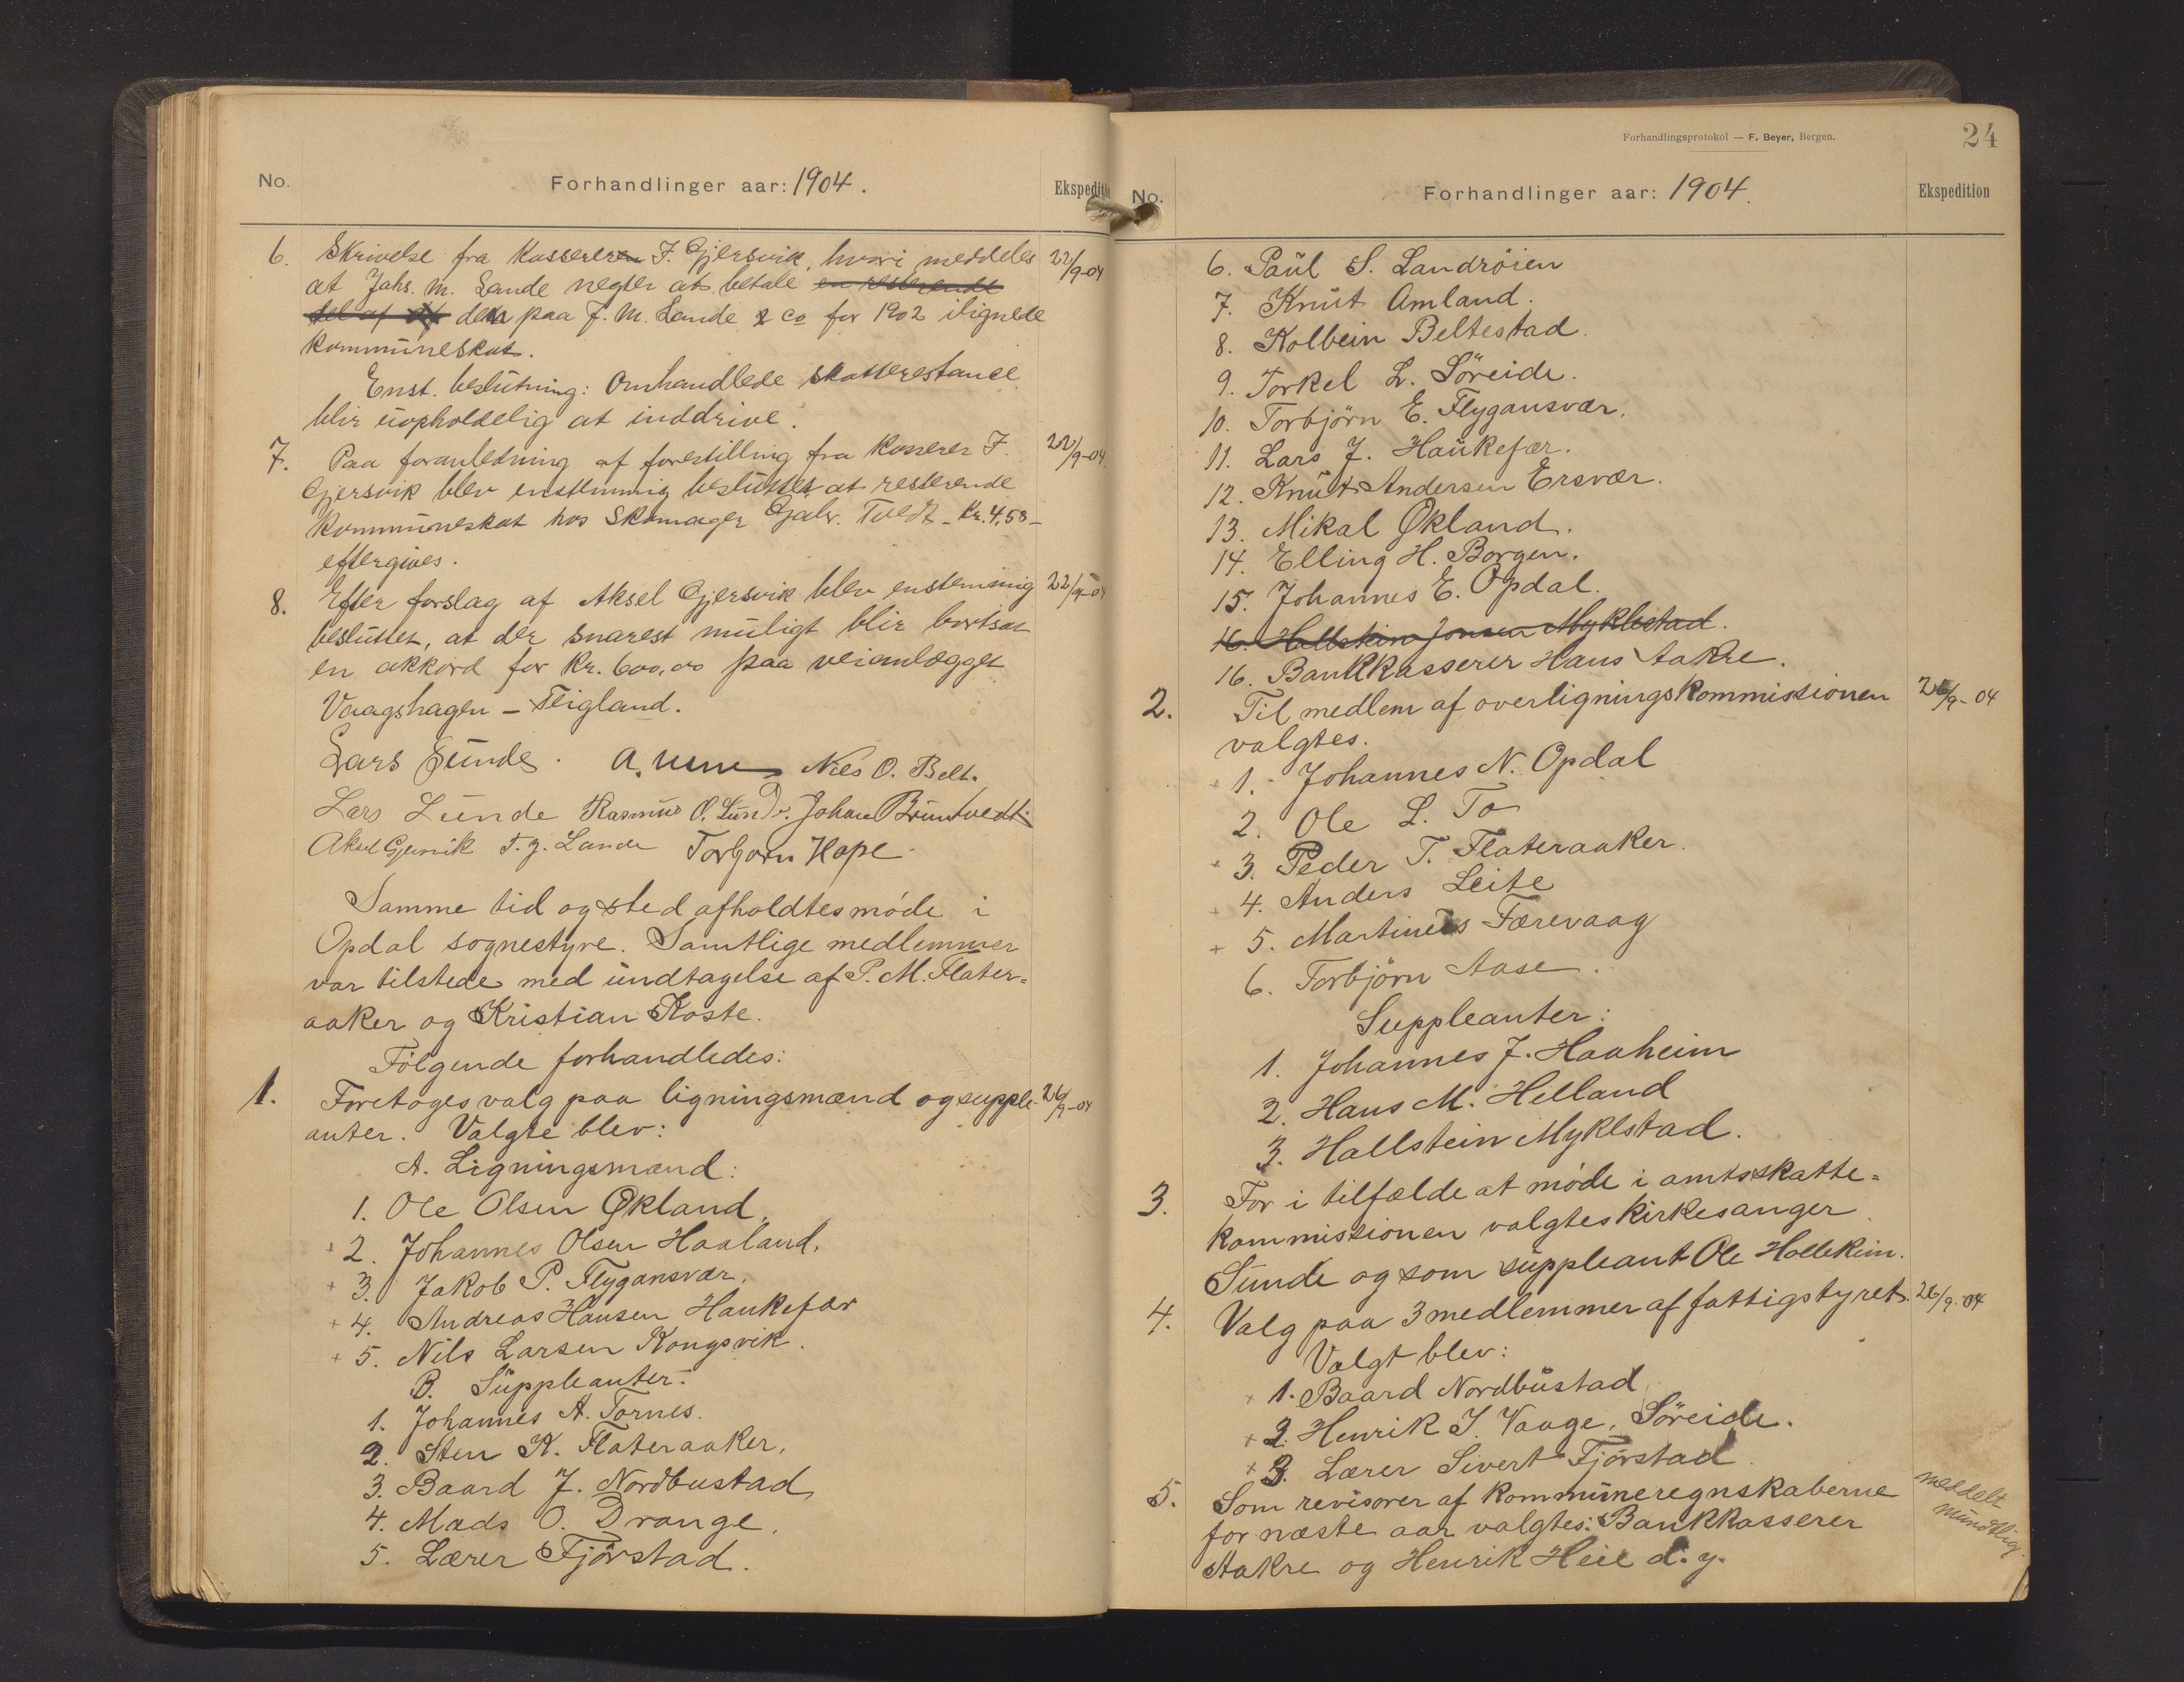 No.
Forhandlinger aar: 1904.
Ekspeditio
6. Skrivelse fra Kassereren F. Gjersvik, hvori meddeles 22/9-04
at Johs. M. Lande negter at betale en resterende
del af den paa J. M. Lande & Co for 1902 ilignede
kommuneskat.
Enst. beslutning: Omhandlede skatterestance
blir uopholdelig at inddrive.
7. Paa foranledning af forestilling fra Kasserer F. 22/9-04.
Gjersvik blev enstemmig besluttet at resterende
kommuneskat hos Skomager Tvedt - Kr. 4,58 -
eftergives.
8. Efter forslag af Aksel Gjersvik blev enstemmig 22/9-04
besluttet, at der snarest muligt blir bortsat
en akkord for Kr. 600,00 paa veianlægget
Vaagshagen - Teigland.
Lars Sunde. Nils O. Belt.
Lars Lunde Rasmus O. Lunde. Johan Bruntvedt.
Aksel Gjersvik T. J. Lande Torbjørn Hope
Samme tid og sted afholdtes møde i
Opdal sognestyre. Samtlige medlemmer
var tilstede med undtagelse af P. M. Flater-
aaker og Kristian Koste.
Følgende forhandledes:
1. Foretoges valg paa ligningsmænd og supple- 26/9-04
anter. Valgte blev:
A. Ligningsmænd:
1. Ole Olsen Økland.
+ 2. Johannes Olsen Haaland.
+ 3. Jakob P. Flygansvær.
+ 4. Andreas Hansen Haukefær
+ 5. Nils Larsen Kongsvik.
B. Suppleanter:
1. Johannes A. Tornes.
2. Sten K. Flateraaker.
3. Baard J. Nordbustad
4. Mads O. Drange.
5. Lærer Fjørstad.
Forhandlingsprotokol — F. Beyer, Bergen.
24
No.
Forhandlinger aar: 1904.
Ekspedition
6. Paul S. Landrøien
7. Knut Amland.
8. Kolbein Beltestad.
9. Torkel L. Søreide.
10. Torbjørn E. Flygansvær.
11. Lars J. Haukefær.
12. Knut Andersen Ersvær.
13. Mikal Økland.
14. Elling H. Borgen.
15. Johannes E. Opdal.
16. Hallstein Jonsen Myklestad.
16. Bankkasserer Hans Aakre.
2. Til medlem af overligningskommissionen 26/9-04
valgtes.
+ 1. Johannes N. Opdal
2. Ole L. To
+ 3. Peder T. Flateraaker.
+ 4. Anders Leite
+ 5. Martines Færevaag
6. Torbjørn Aase.
Suppleanter:
1. Johannes J. Haaheim
2. Hans M. Helland
3. Hallstein Myklstad.
3. For i tilfælde at møde i amtsskatte-
kommissionen valgtes kirkesanger
Sunde og som suppleant Ole Hollekim.
4. Valg paa 3 medlemmer af fattigstyret. 26/9-04
Valgt blev:
+ 1. Baard Nordbustad
+ 2. Henrik J. Vaage, Søreide.
+ 3. Lærer Sivert Fjørstad.
5. Som revisorer af kommuneregnskaberne meddelt
for næste aar valgtes: Bankkasserer mundtlig.
Aakre og Henrik Heie d. y.